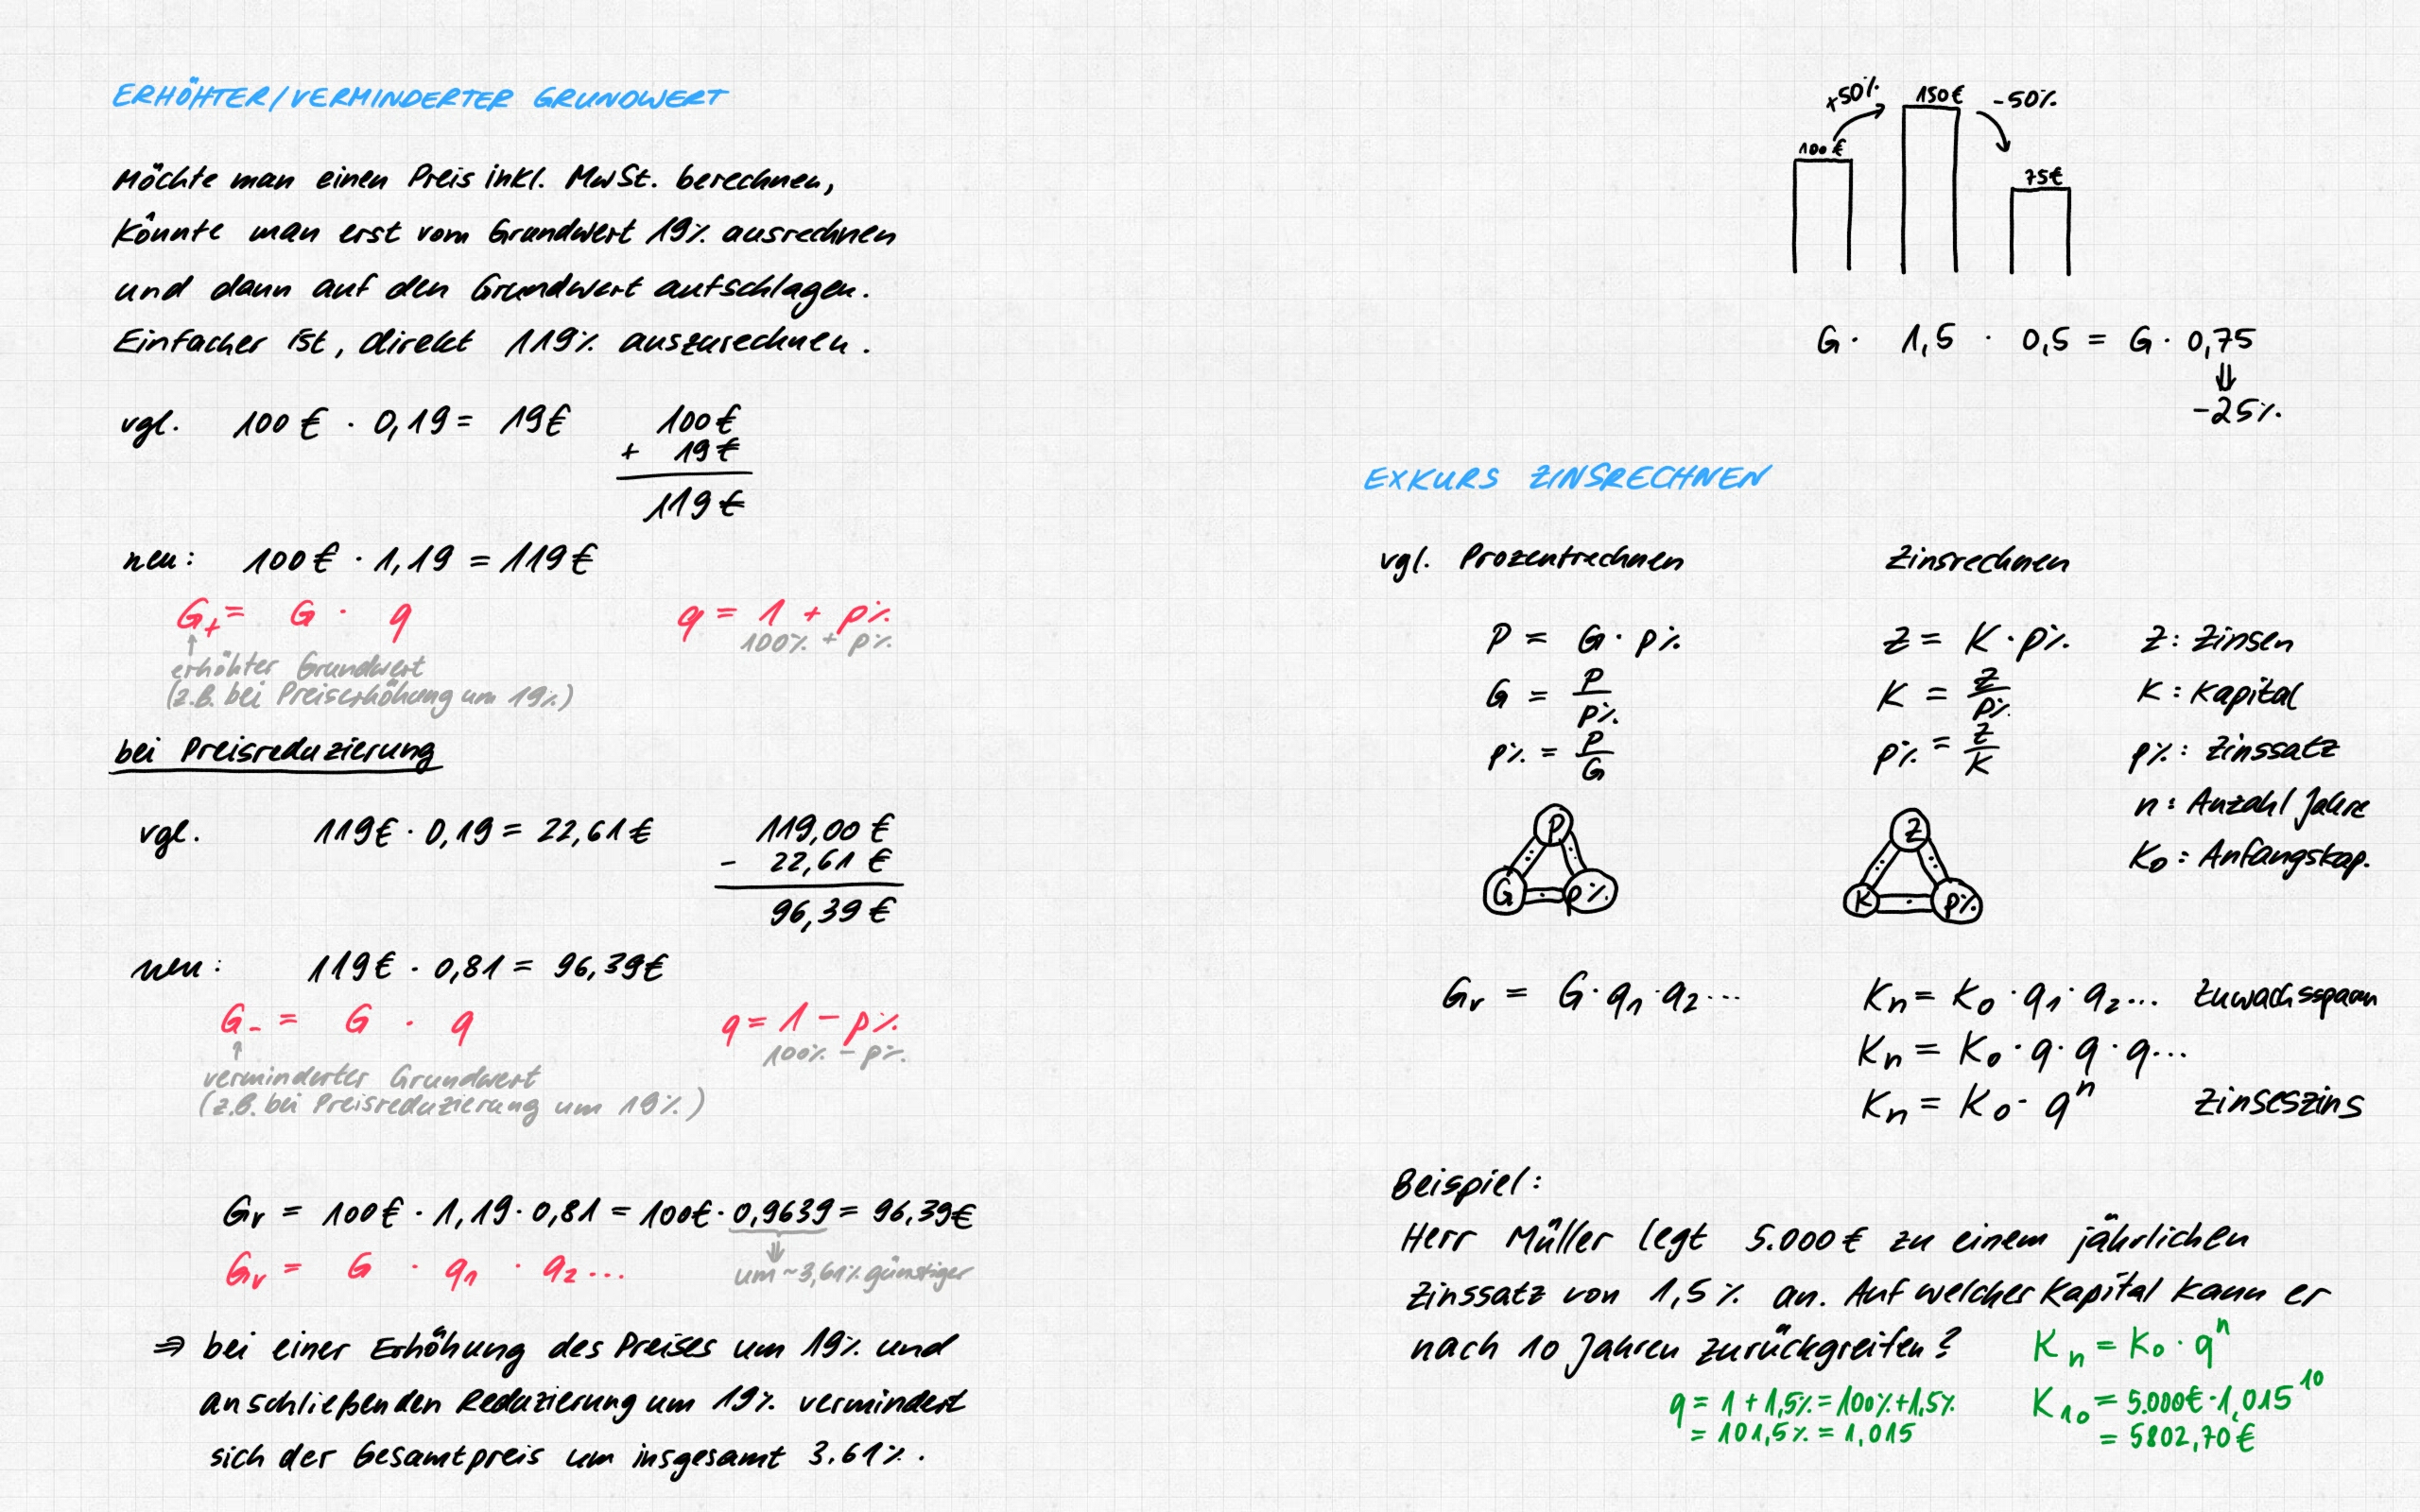 ERHÖHTER/VERMINDERTER GRUNDWERT
Möchte man einen Preis inkl. MwSt. berechnen,
könnte man erst vom Grundwert 19% ausrechnen
und dann auf den Grundwert aufschlagen.
Einfacher ist, direkt 119% auszurechnen.
vgl. 100€ · 0,19 = 19€
100€
+ 19€
119€
neu: 100€ · 1,19 = 119€
G₊ = G · q q = 1 + p%
100% + p%
↑
erhöhter Grundwert
(z.B. bei Preiserhöhung um 19%)
bei Preisreduzierung
vgl. 119€ · 0,19 = 22,61€
119,00€
- 22,61€
96,39€
neu: 119€ · 0,81 = 96,39€
G₋ = G · q q = 1 - p%
100% - p%
↑
verminderter Grundwert
(z.B. bei Preisreduzierung um 19%)
Gᵥ = 100€ · 1,19 · 0,81 = 100€ · 0,9639 = 96,39€
Gᵥ = G · q₁ · q₂ ...
⇓
um ~3,61% günstiger
⇒ bei einer Erhöhung des Preises um 19% und
anschließenden Reduzierung um 19% vermindert
sich der Gesamtpreis um insgesamt 3.61%.
+50% 150€ -50%
100€
75€
G · 1,5 · 0,5 = G · 0,75
⇓
-25%
EXKURS ZINSRECHNEN
vgl. Prozentrechnen Zinsrechnen
P = G · p% Z = K · p% Z: Zinsen
G = P/p% K = Z/p% K: Kapital
p% = P/G p% = Z/K p%: Zinssatz
n: Anzahl Jahre
K₀: Anfangskap.
P
: :
G · p%
Z
: :
K · p%
Gᵥ = G · q₁ · q₂ ... Kₙ = K₀ · q₁ · q₂ ... Zuwachssparen
Kₙ = K₀ · q · q · q ...
Kₙ = K₀ · qⁿ Zinseszins
Beispiel:
Herr Müller legt 5.000€ zu einem jährlichen
Zinssatz von 1,5% an. Auf welches Kapital kann er
nach 10 Jahren zurückgreifen? Kₙ = K₀ · qⁿ
q = 1 + 1,5% = 100% + 1,5% K₁₀ = 5.000€ · 1,015¹⁰
= 101,5% = 1,015 = 5802,70€